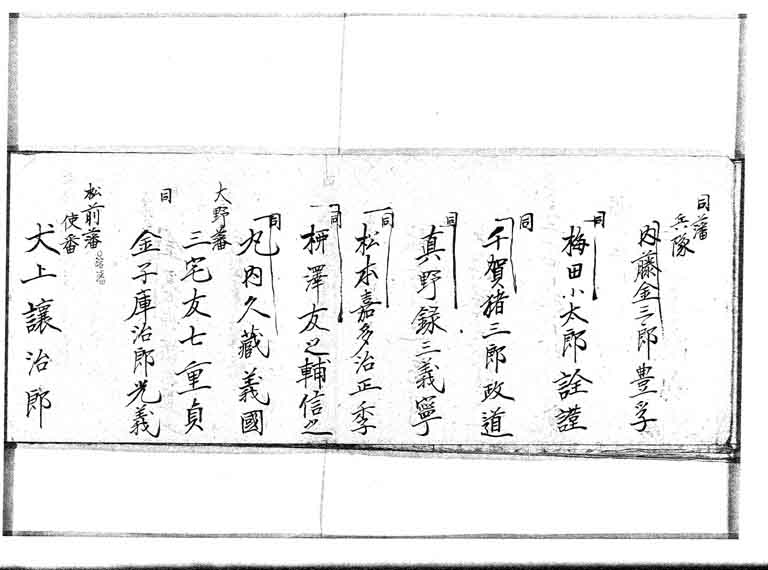 同藩
兵隊
内藤金三郎豊孚
同
梅田小太郎詮謹
同
千賀猪三郎政道
同
真野録三義寧
同
松本嘉多治正季
同
柳澤友之輔信之
同
丸内久藏義國
大野藩
三宅友七重貞
同
金子庫治郎光義
松前藩
使番
犬上讓治郎